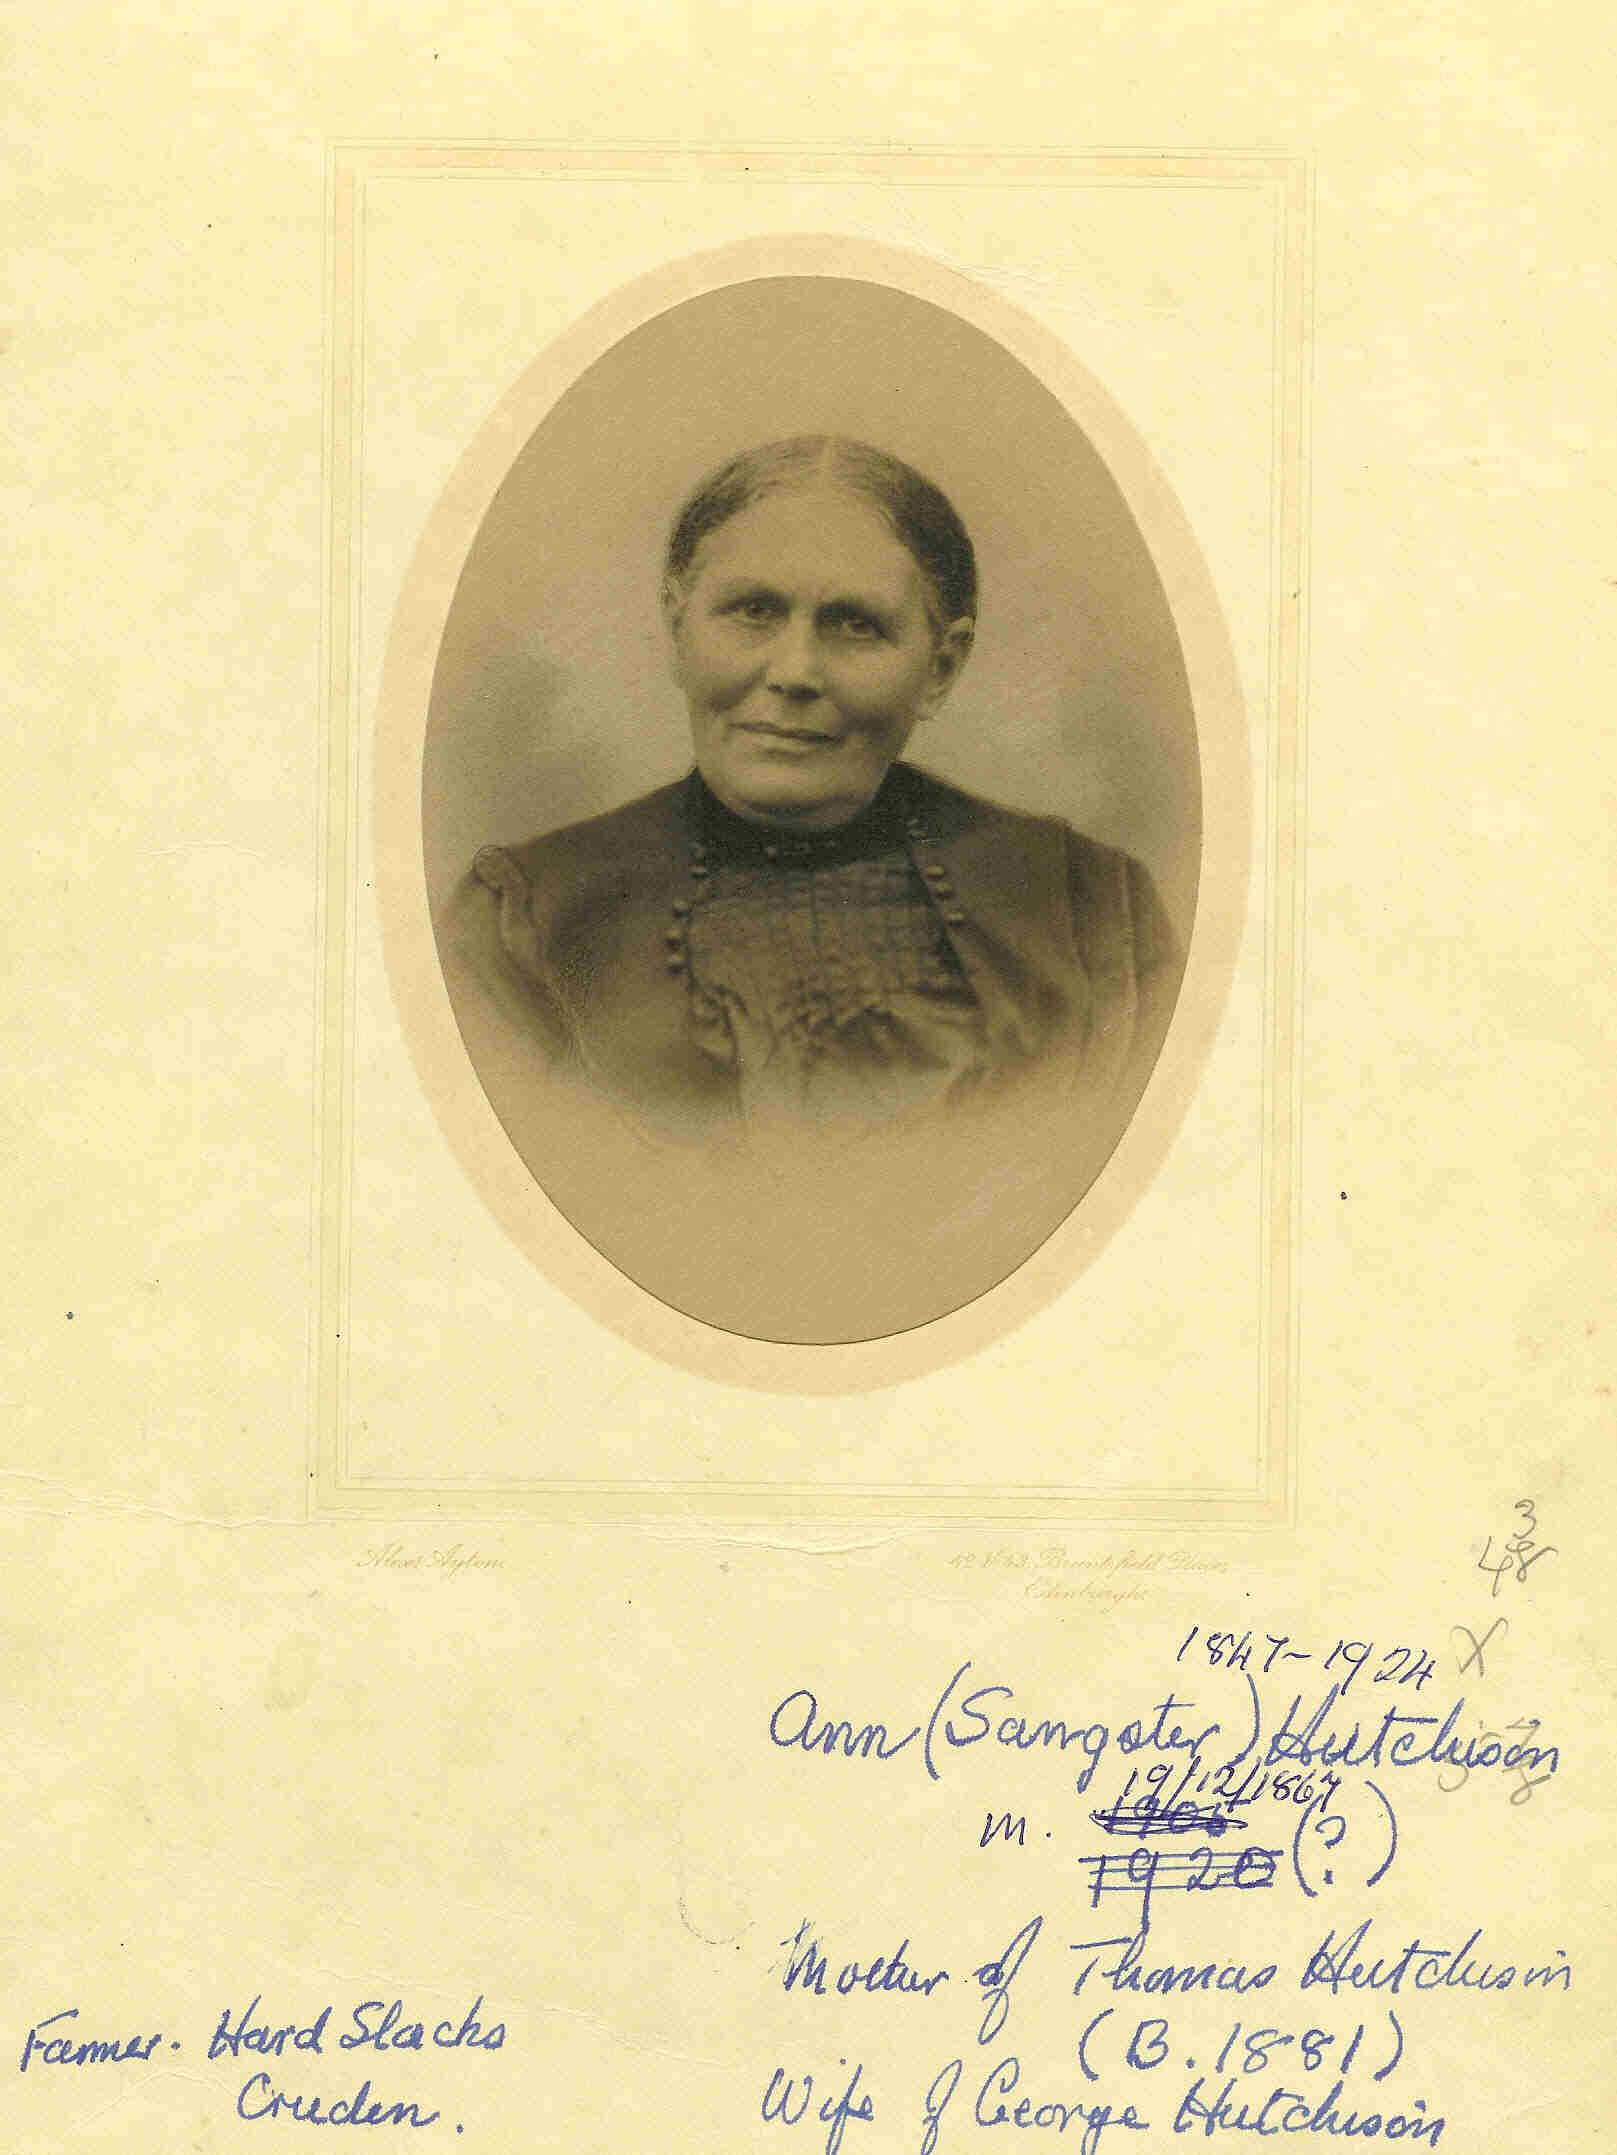 Alexr Ayton
42 & 43, Bruntsfield Place,
Edinburgh
3
48
1847-1924 X
Ann (Sangster) Hutchison
19/12/1867
m. 1905
1920 (?)
Mother of Thomas Hutchison
(B. 1881)
Wife of George Hutchison
Farmer. Hard Slacks
Cruden.